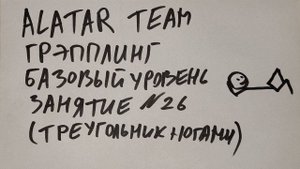 ALATAR TEAM
ГРЭППЛИНГ
БАЗОВЫЙ УРОВЕНЬ
ЗАНЯТИЕ №26
(ТРЕУГОЛЬНИК НОГАМИ)